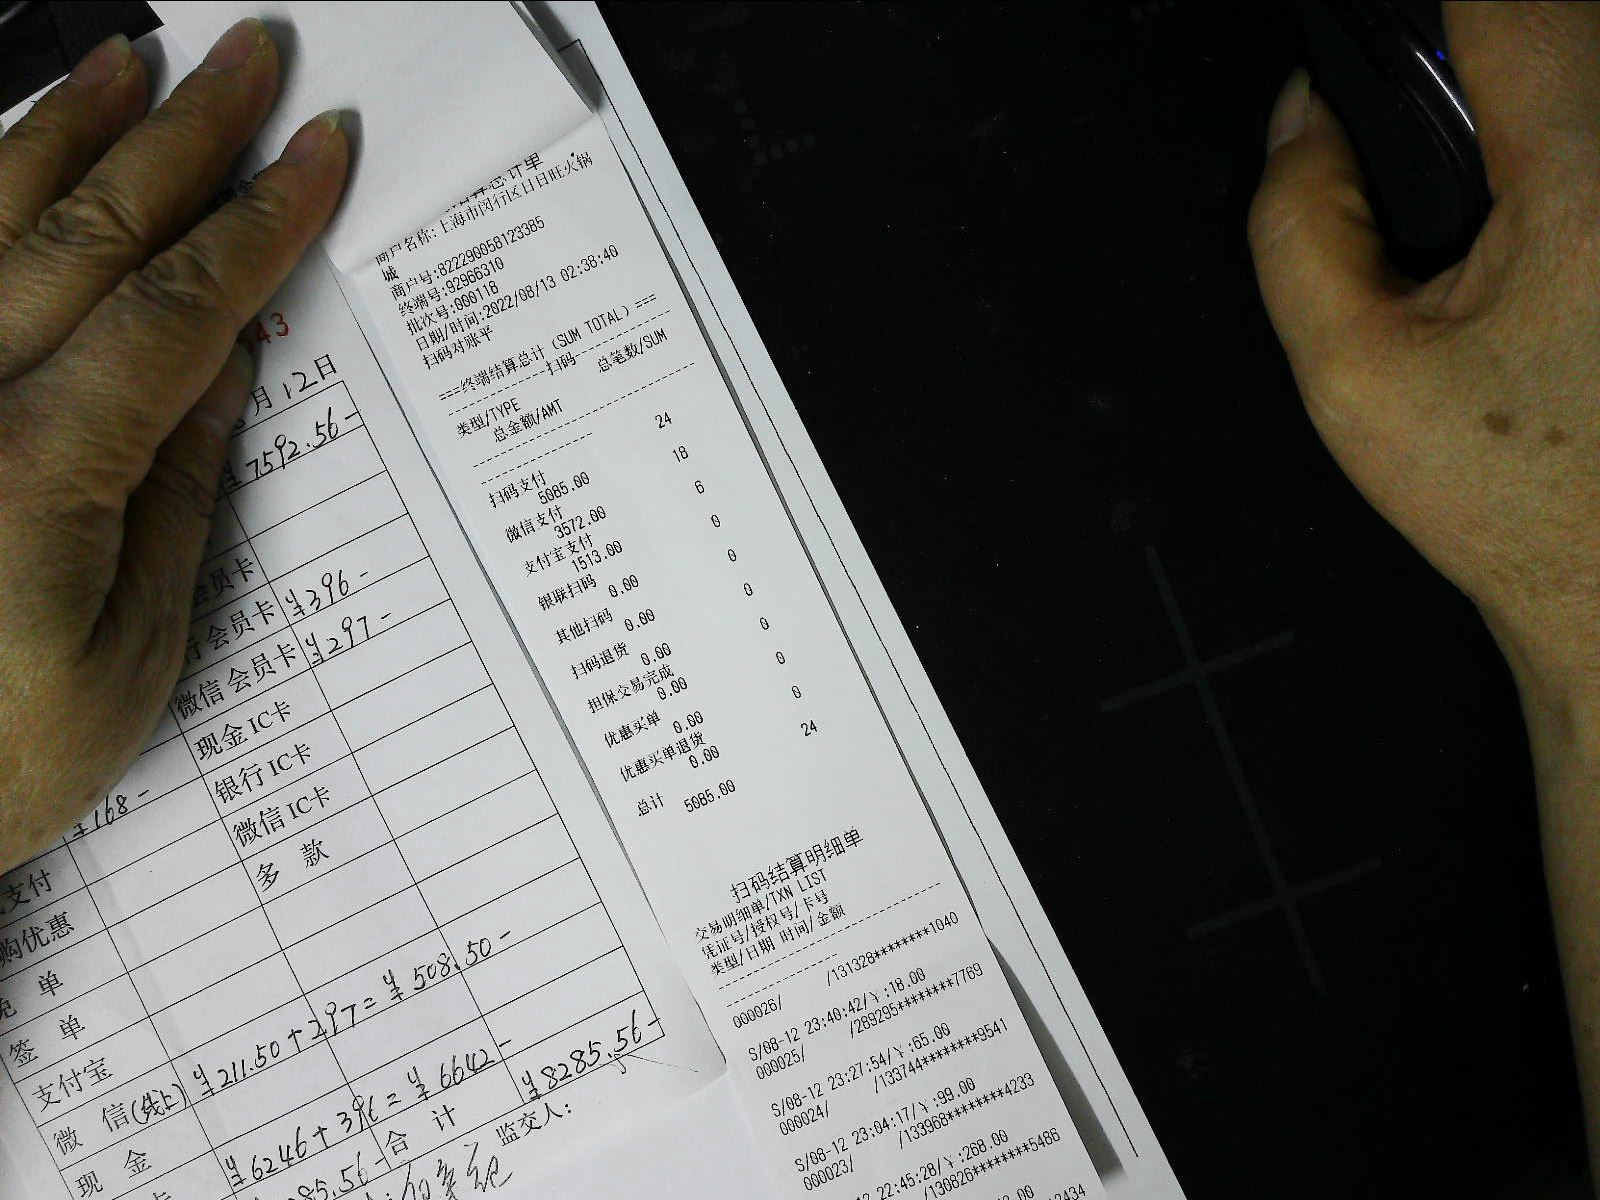 43
月12日
¥7592.56-
会员卡
行会员卡 ¥396-
微信会员卡 ¥297-
现金IC卡
银行IC卡
微信IC卡
多 款
¥168-
支付
购优惠
免 单
签 单
支付宝
微 信(线上) ¥211.50+297=¥508.50-
现 金
卡 ¥6246+396=¥6642-
合 计 ¥8285.56-
监交人:
商户名称:上海市闵行区日日旺火锅
城
商户号:822290058123385
终端号:92966310
批次号:000118
日期/时间:2022/08/13 02:38:40
扫码对账平
===终端结算总计 (SUM TOTAL) ===
----------扫码----------
类型/TYPE 总笔数/SUM
总金额/AMT
扫码支付 24
5085.00
微信支付 18
3572.00
支付宝支付 6
1513.00
银联扫码 0
0.00
其他扫码 0
0.00
扫码退货 0
0.00
担保交易完成 0
0.00
优惠买单 0
0.00
优惠买单退货 0
0.00
总计 24
5085.00
扫码结算明细单
交易明细单/TXN LIST
凭证号/授权号/卡号
类型/日期 时间/金额
000026/ /131328********1040
S/08-12 23:40:42/¥:18.00
000025/ /289295********7769
S/08-12 23:27:54/¥:65.00
000024/ /133744********9541
S/08-12 23:04:17/¥:99.00
000023/ /133968********4233
22:45:28/¥:268.00
/130826********5486